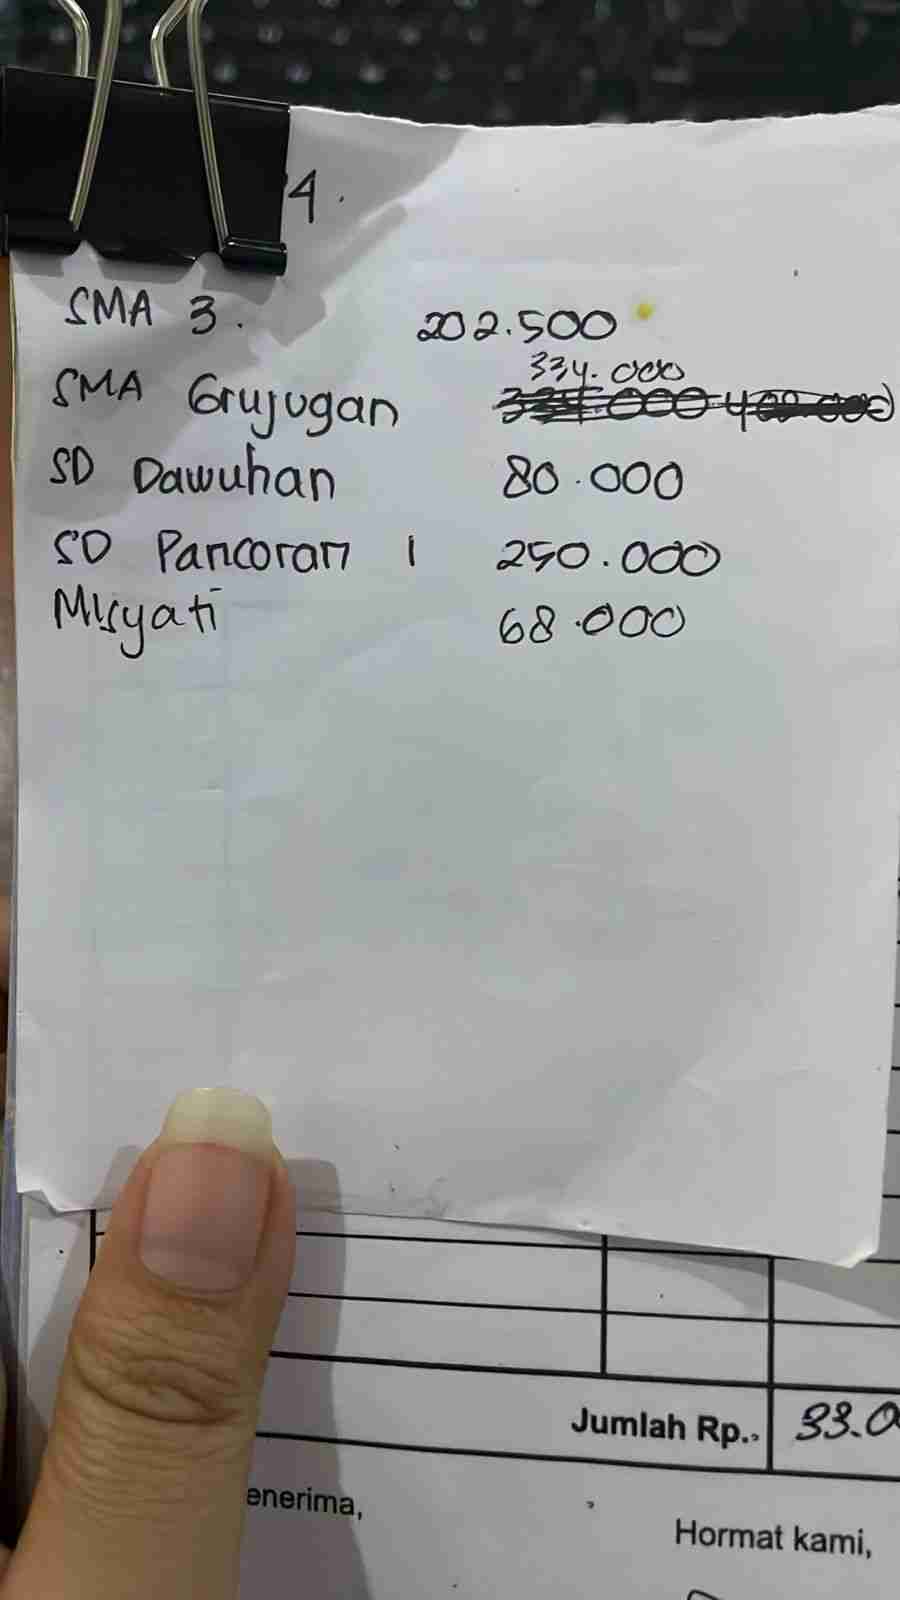 4.
SMA 3. 202.500
334.000
SMA Grujugan
SD Dawuhan 80.000
SD Pancoran 1 250.000
Misyati 68.000
Jumlah Rp.. 33.0
enerima,
Hormat kami,